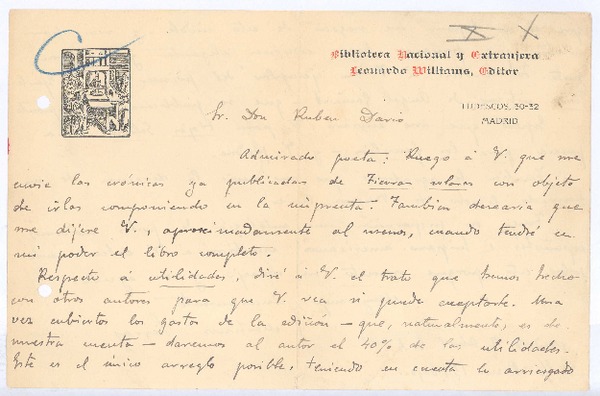 X X
Biblioteca Nacional y Extranjera
Leonardo Williams, Editor
TUDESCOS, 30-32
MADRID
Sr. Don Ruben Dario
Admirado poeta: Ruego á V. que me
envie las crónicas ya publicadas de con objeto
de irlas componiendo en la imprenta. Tambien desearia que
me dijere V., aproximadamente al menos, cuando tendré en
mi poder el libro completo.
Respecto á utilidades, diré á V. el trato que hemos hecho
con otros autores para que V. vea si puede aceptarle. Una
vez cubiertos los gastos de la edición – que, naturalmente, es de
nuestra cuenta – daremos al autor el 40% de las utilidades.
Este es el único arreglo posible, teniendo en cuenta lo arriesgado